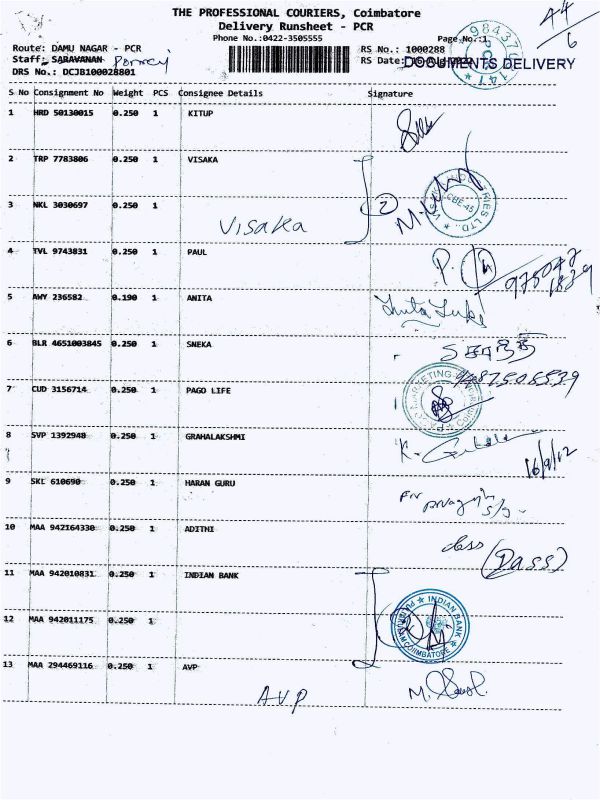 THE PROFESSIONAL COURIERS, Coimbatore
Delivery Runsheet - PCR
Phone No.:0422-3505555
Page No.:1
44/6
Route: DAMU NAGAR - PCR
Staff: SARAVANAN
DRS No.: DCJB100028801
RS No.: 1000288
RS Date:
DOCUMENTS DELIVERY
S No Consignment No Weight PCS Consignee Details Signature
1 HRD 50130015 0.250 1 KITUP
2 TRP 7783806 0.250 1 VISAKA
3 NKL 3030697 0.250 1
Visaka
2
VISAKA INDUSTRIES LTD. CBE-45
4 TVL 9743831 0.250 1 PAUL
P.
5 AWY 236582 0.190 1 ANITA
6 BLR 4651003845 0.250 1 SNEKA
7 CUD 3156714 0.250 1 PAGO LIFE
8 SVP 1392948 0.250 1 GRAHALAKSHMI
K.
9 SKL 610690 0.250 1 HARAN GURU
10 MAA 942164330 0.250 1 ADITHI
(Dass)
11 MAA 942010831 0.250 1 INDIAN BANK
12 MAA 942011175 0.250 1
INDIAN BANK COIMBATORE
13 MAA 294469116 0.250 1 AVP
AVP
M.